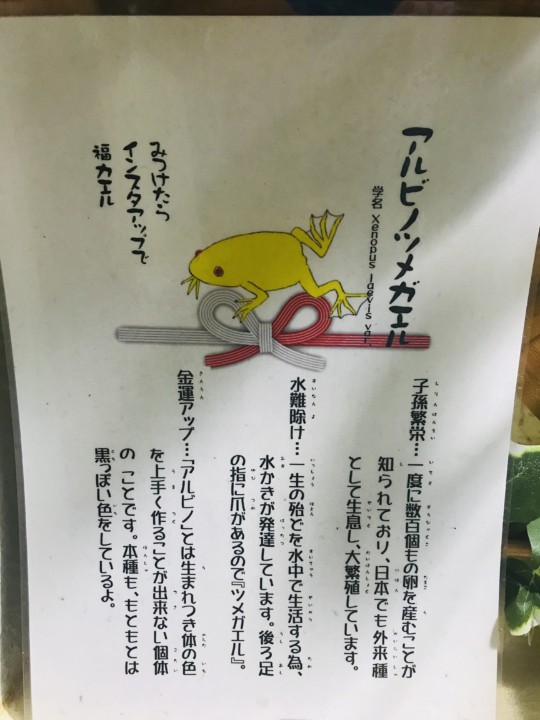 アルビノツメガエル
学名 Xenopus laevis var.
みつけたら
インスタアップで
福カエル
子孫繁栄…一度に数百個もの卵を産むことが
知られており、日本でも外来種
として生息し、大繁殖しています。
水難除け…一生の殆どを水中で生活する為、
水かきが発達しています。後ろ足
の指に爪があるので『ツメガエル』。
金運アップ…「アルビノ」とは生まれつき体の色
を上手く作ることが出来ない個体
の ことです。本種も、もともとは
黒っぽい色をしているよ。